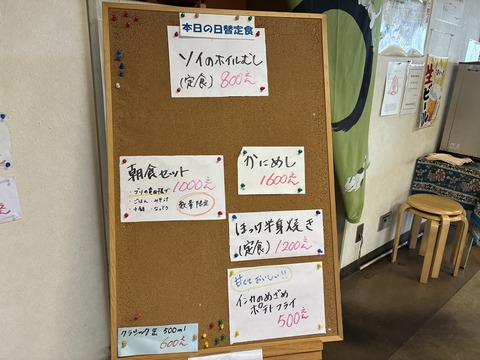 本日の日替定食
ソイのホイルむし
(定食) 800えん
朝食セット
1000えん
・ごはん ・みそ汁
数量限定
かにめし
1600えん
ほっけ半身焼き
(定食) 1200えん
甘くておいしい!!
インカのめざめ
ポテトフライ
500えん
クラシック缶 500ml
600えん
生ビール